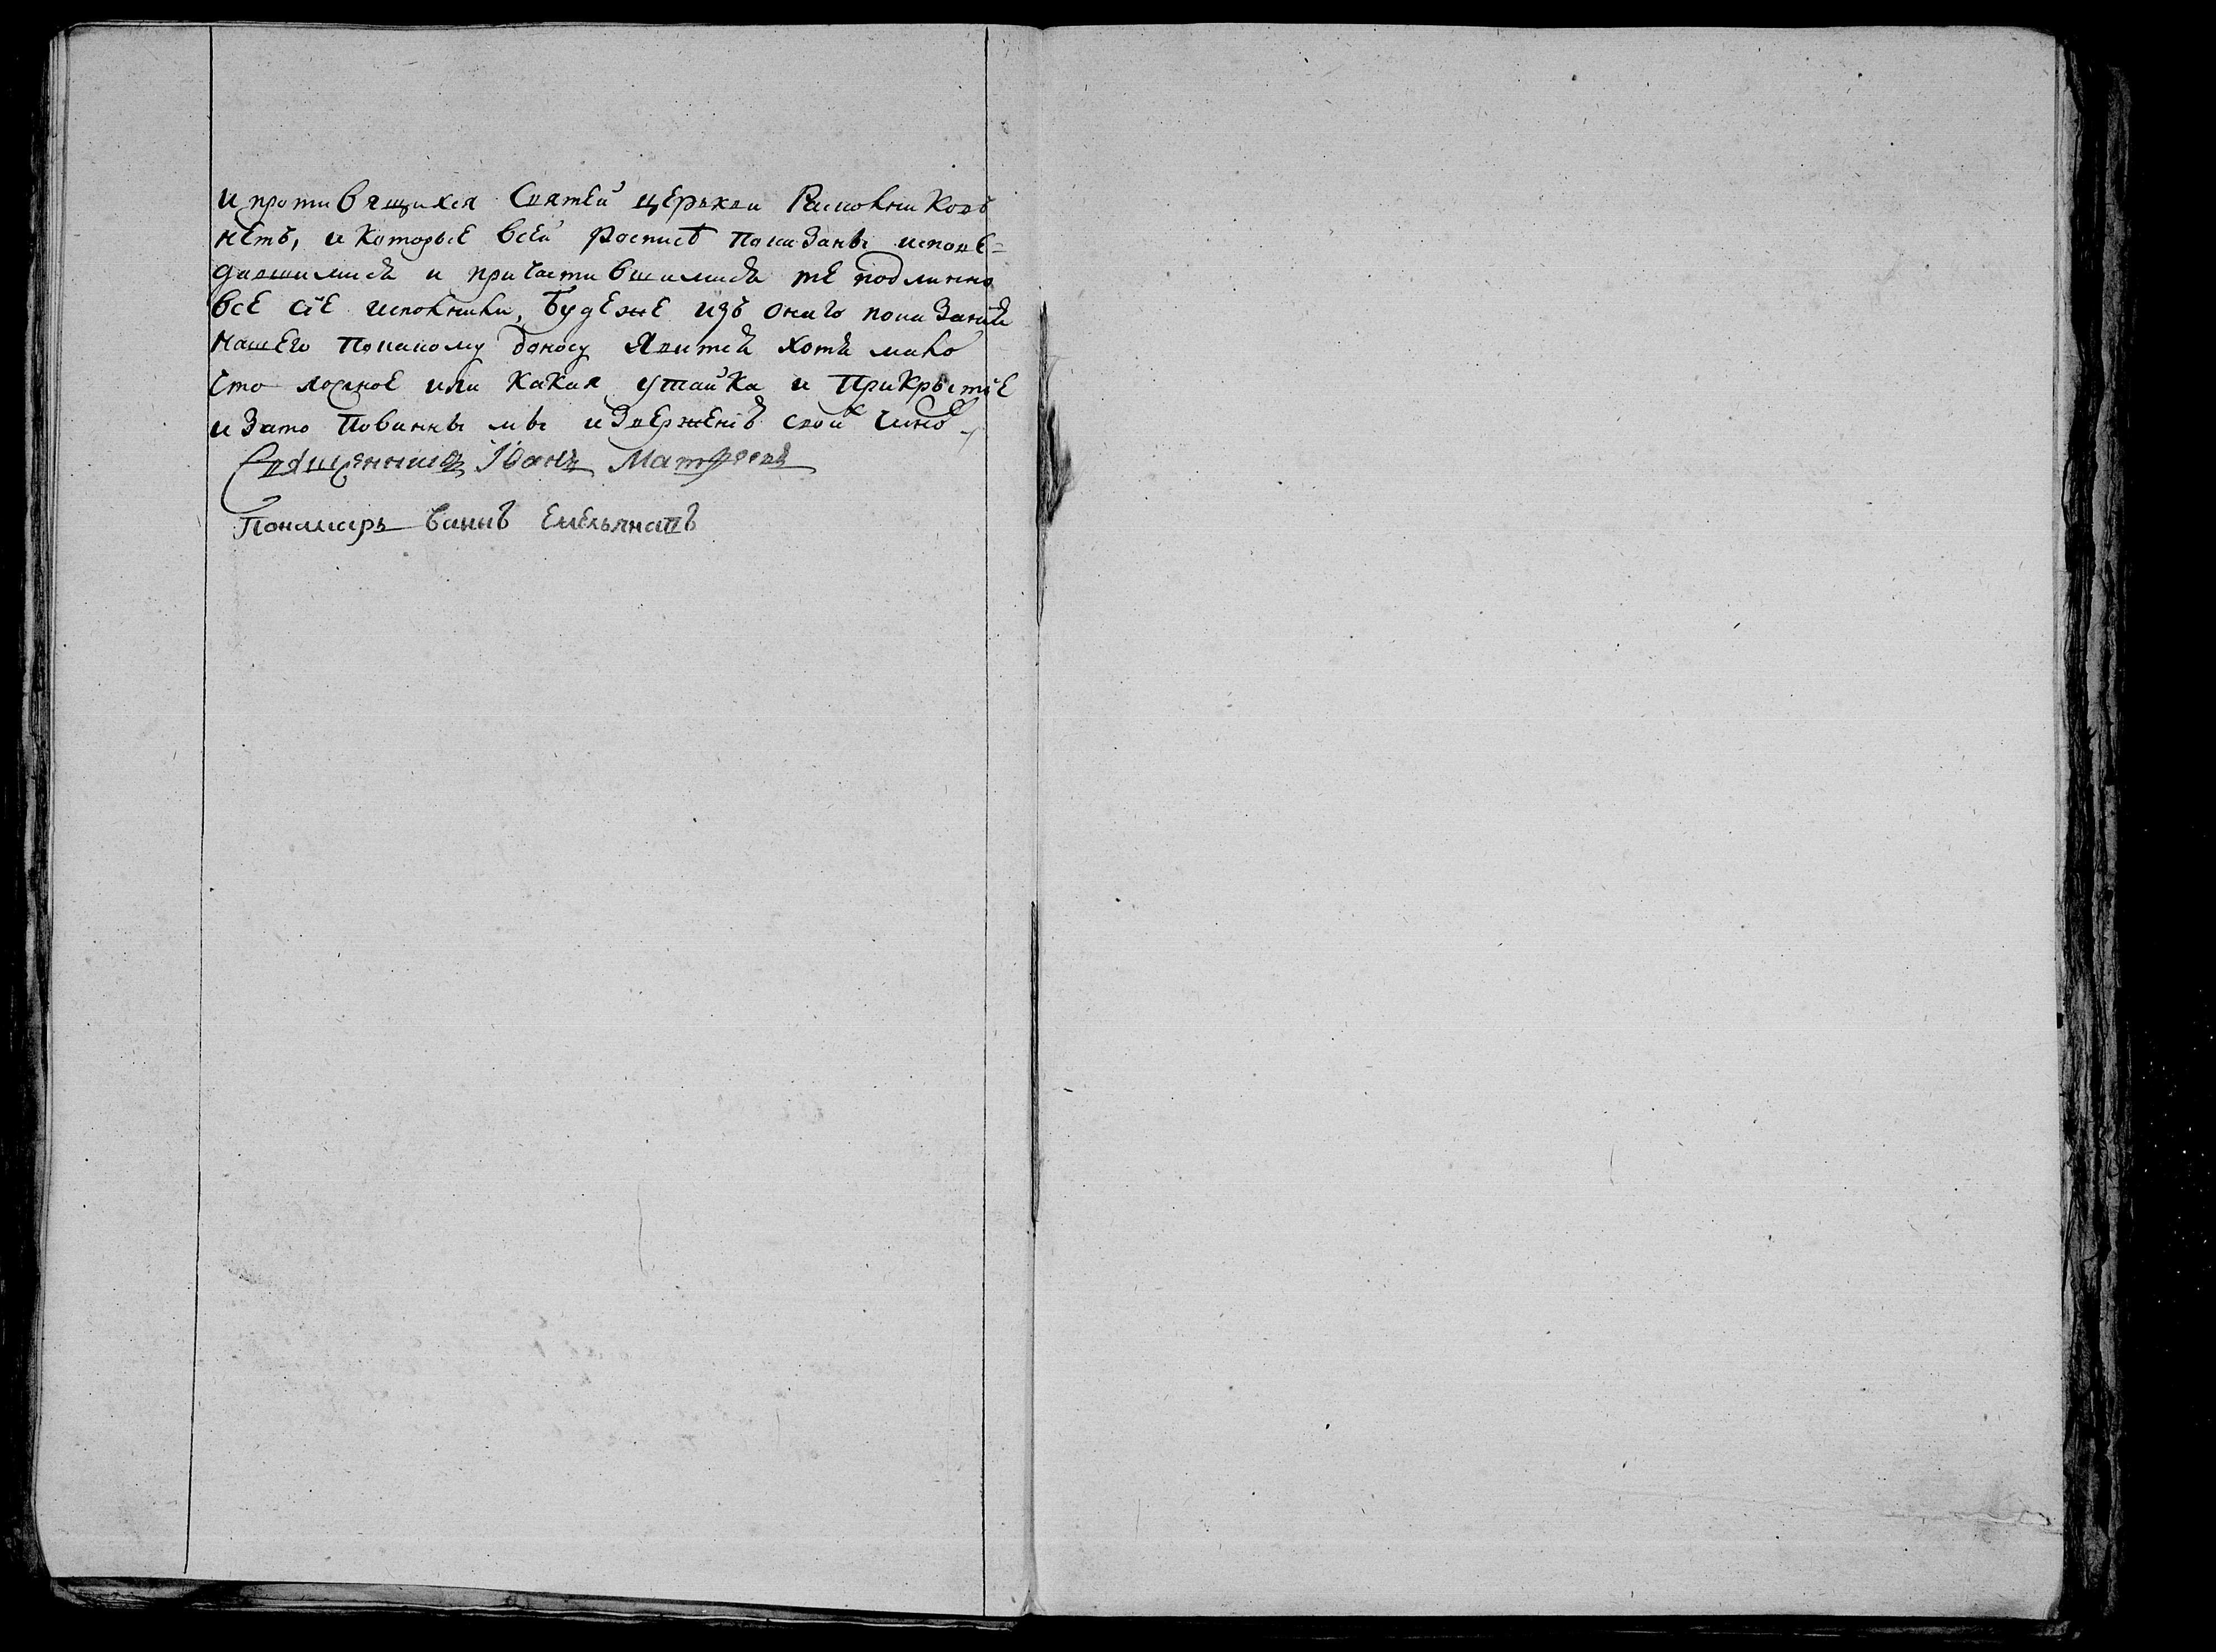 и противящихся Святей церькви Расколников
нетъ, и которые всей росписѣ показаны испове=
давшимися и причастившимися те подлинно
все сiе исполнили, Буде же изъ онаго показанiя
нашего по какому доносу явится хотя мало
что ложное или какая утайка и прикрытiе
и за то повинны мы извержениѣ свои чиновъ
Священникъ Iванъ Матфеевъ
Пономарь Емельяновъ